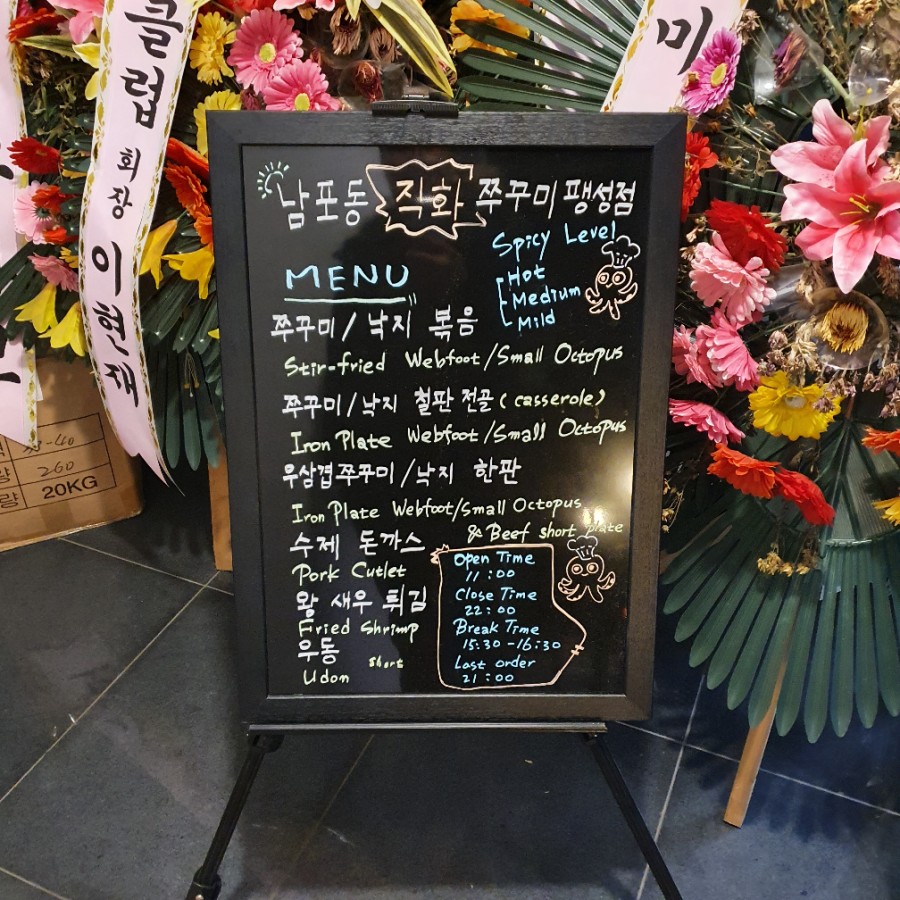 클럽 회장 이현재
미
남포동 직화 쭈꾸미 팽성점
Spicy Level
Hot
Medium
Mild
MENU
쭈꾸미/낙지 볶음
Stir-fried Webfoot/Small Octopus
쭈꾸미/낙지 철판 전골(casserole)
Iron Plate Webfoot/Small Octopus
우삼겹쭈꾸미/낙지 한판
Iron Plate Webfoot/Small Octopus
& Beef short plate
수제 돈까스
Pork Cutlet
왕 새우 튀김
Fried Shrimp
우동
short
Udon
Open Time
11:00
Close Time
22:00
Break Time
15:30-16:30
Last order
21:00
260
량 20KG